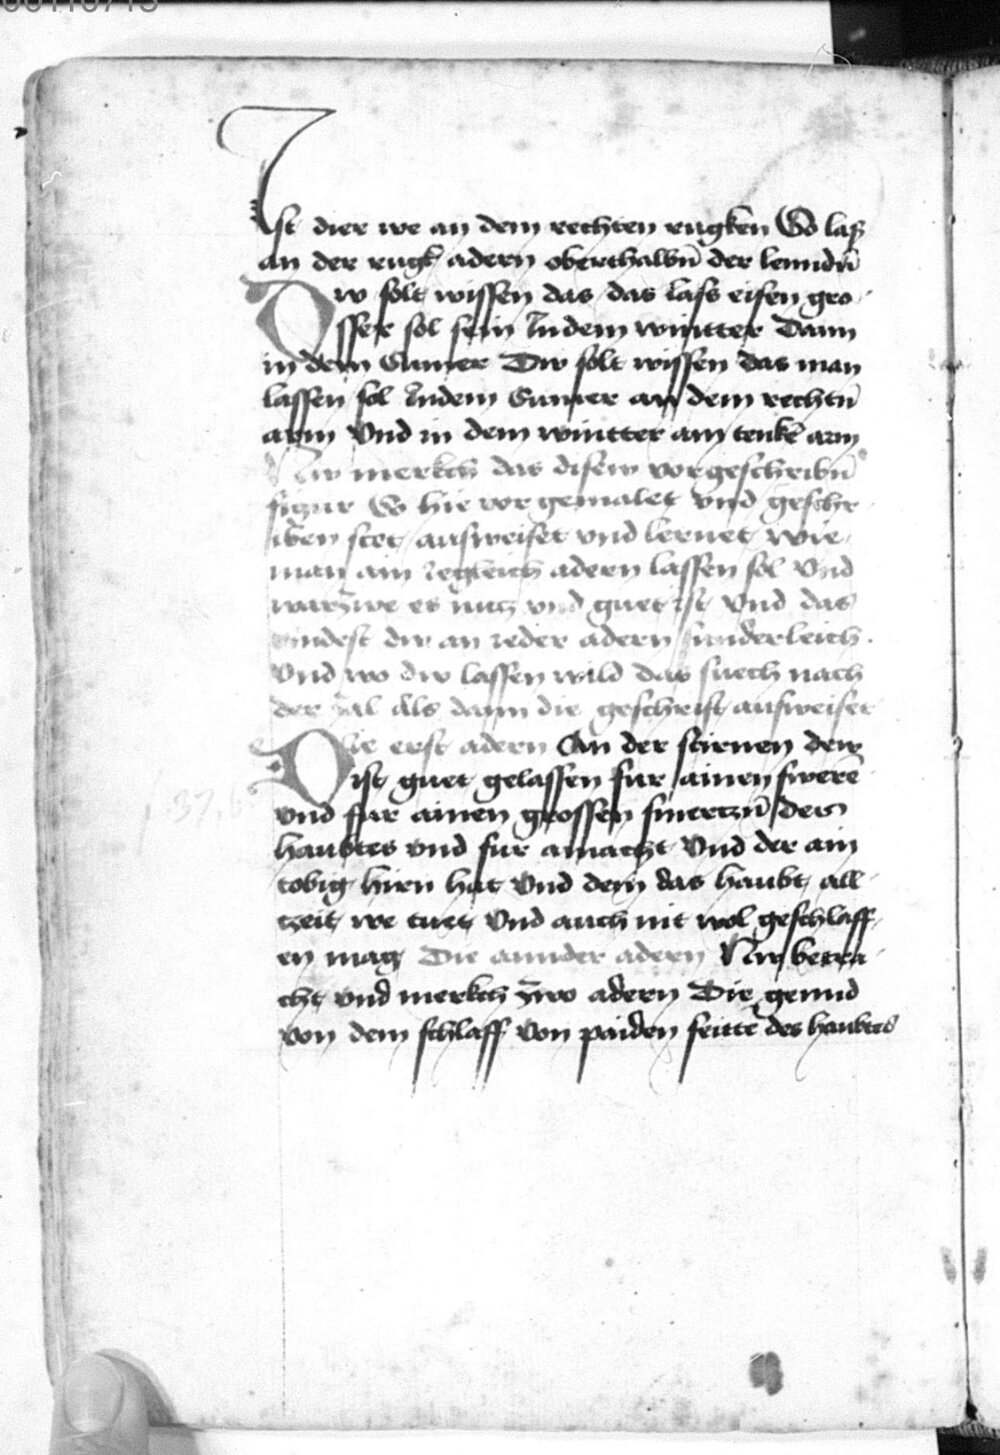 Ist dier we an dem rechten rugken So las
an der rugk adern oberthalbn̄ der lenndn̄
Dw solt wissen das das lass eisen gro
sser sol sein Indem winntter Dann
in dem Sumer Dw solt wissen das man
lassen sol Indem Sumer an dem rechtn̄
arm Vnd in dem winntter am tenkē arm
Nw merkch das disew vorgeschribn̄
figur So hie vor gemalet vnd geschr
iben stet ausweiset vnd lernet wie
man ain iegleich adern lassen sol Vnd
warzwe es nutz vnd guet ist Vnd das
vindest dw an ieder adern sunderleich
Vnd wo dw lassen wild das suech nach
der zal Als dann die geschrift ausweiset
Die erst adern An der stirnen dew
ist guet gelassen fur ainen swerē
vnd fur ainen grossen smertzn̄ des
haubtes vnd fur amacht Vnd der ain
tobig hirn hat Vnd dem das haubt all
tzeit we tuet Vnd auch nit wol geschlaff
en mag Die annder adern Nw betra
cht vnd merkch zwo adern Die gennd
von dem schlaff von paiden seittē des haubtes